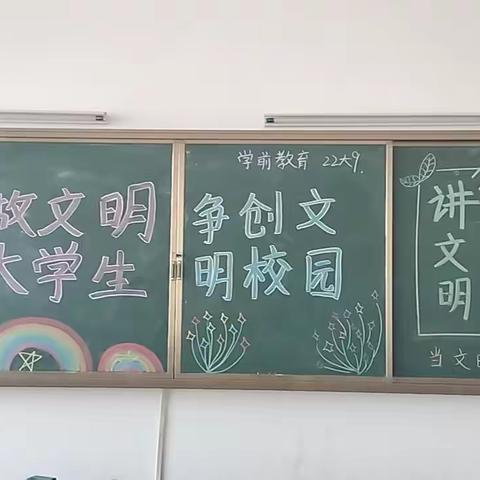 做文明
大学生
学前教育 22大9.
争创文
明校园
讲
文
明
当文明